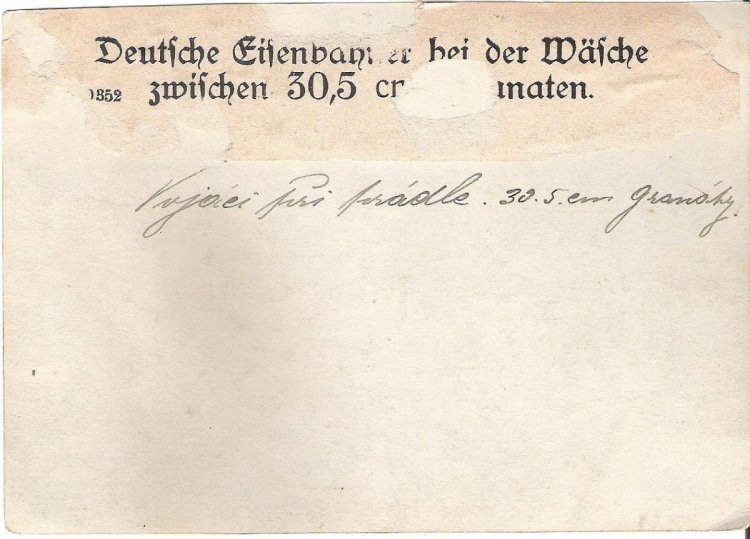 Deutsche Eisenbahner bei der Wäsche
0352 zwischen 30,5 cm Granaten.
Vojáci při prádle. 30.5.cm granáty.